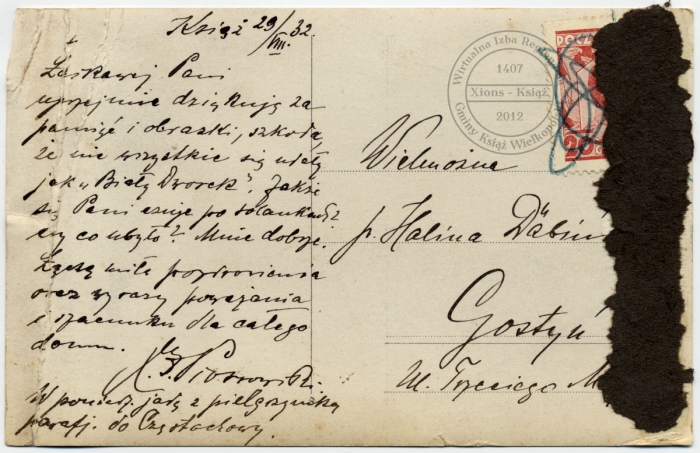 Książ 29/VIII. 32
Łaskawej Pani
uprzejmie dziękuję za
pamięć i obrazki, szkoda,
że nie wszystkie się udały
jak „Biały Dworek”. Jakże
się Pani czuje po solankach?
czy co ubyło? Mnie dobrze.
Łączę miłe pozdrowienia
oraz wyrazy poważania
i szacunku dla całego
domu.
Piotrowski.
W poniedz. jadę z pielgrzymką
parafj. do Częstochowy.
Wirtualna Izba
1407
Xions - Książ
2012
Gminy Książ Wielkopolski
Wielmożna
p. Halina Dąbiń
Gostyń
ul. Trzeciego M